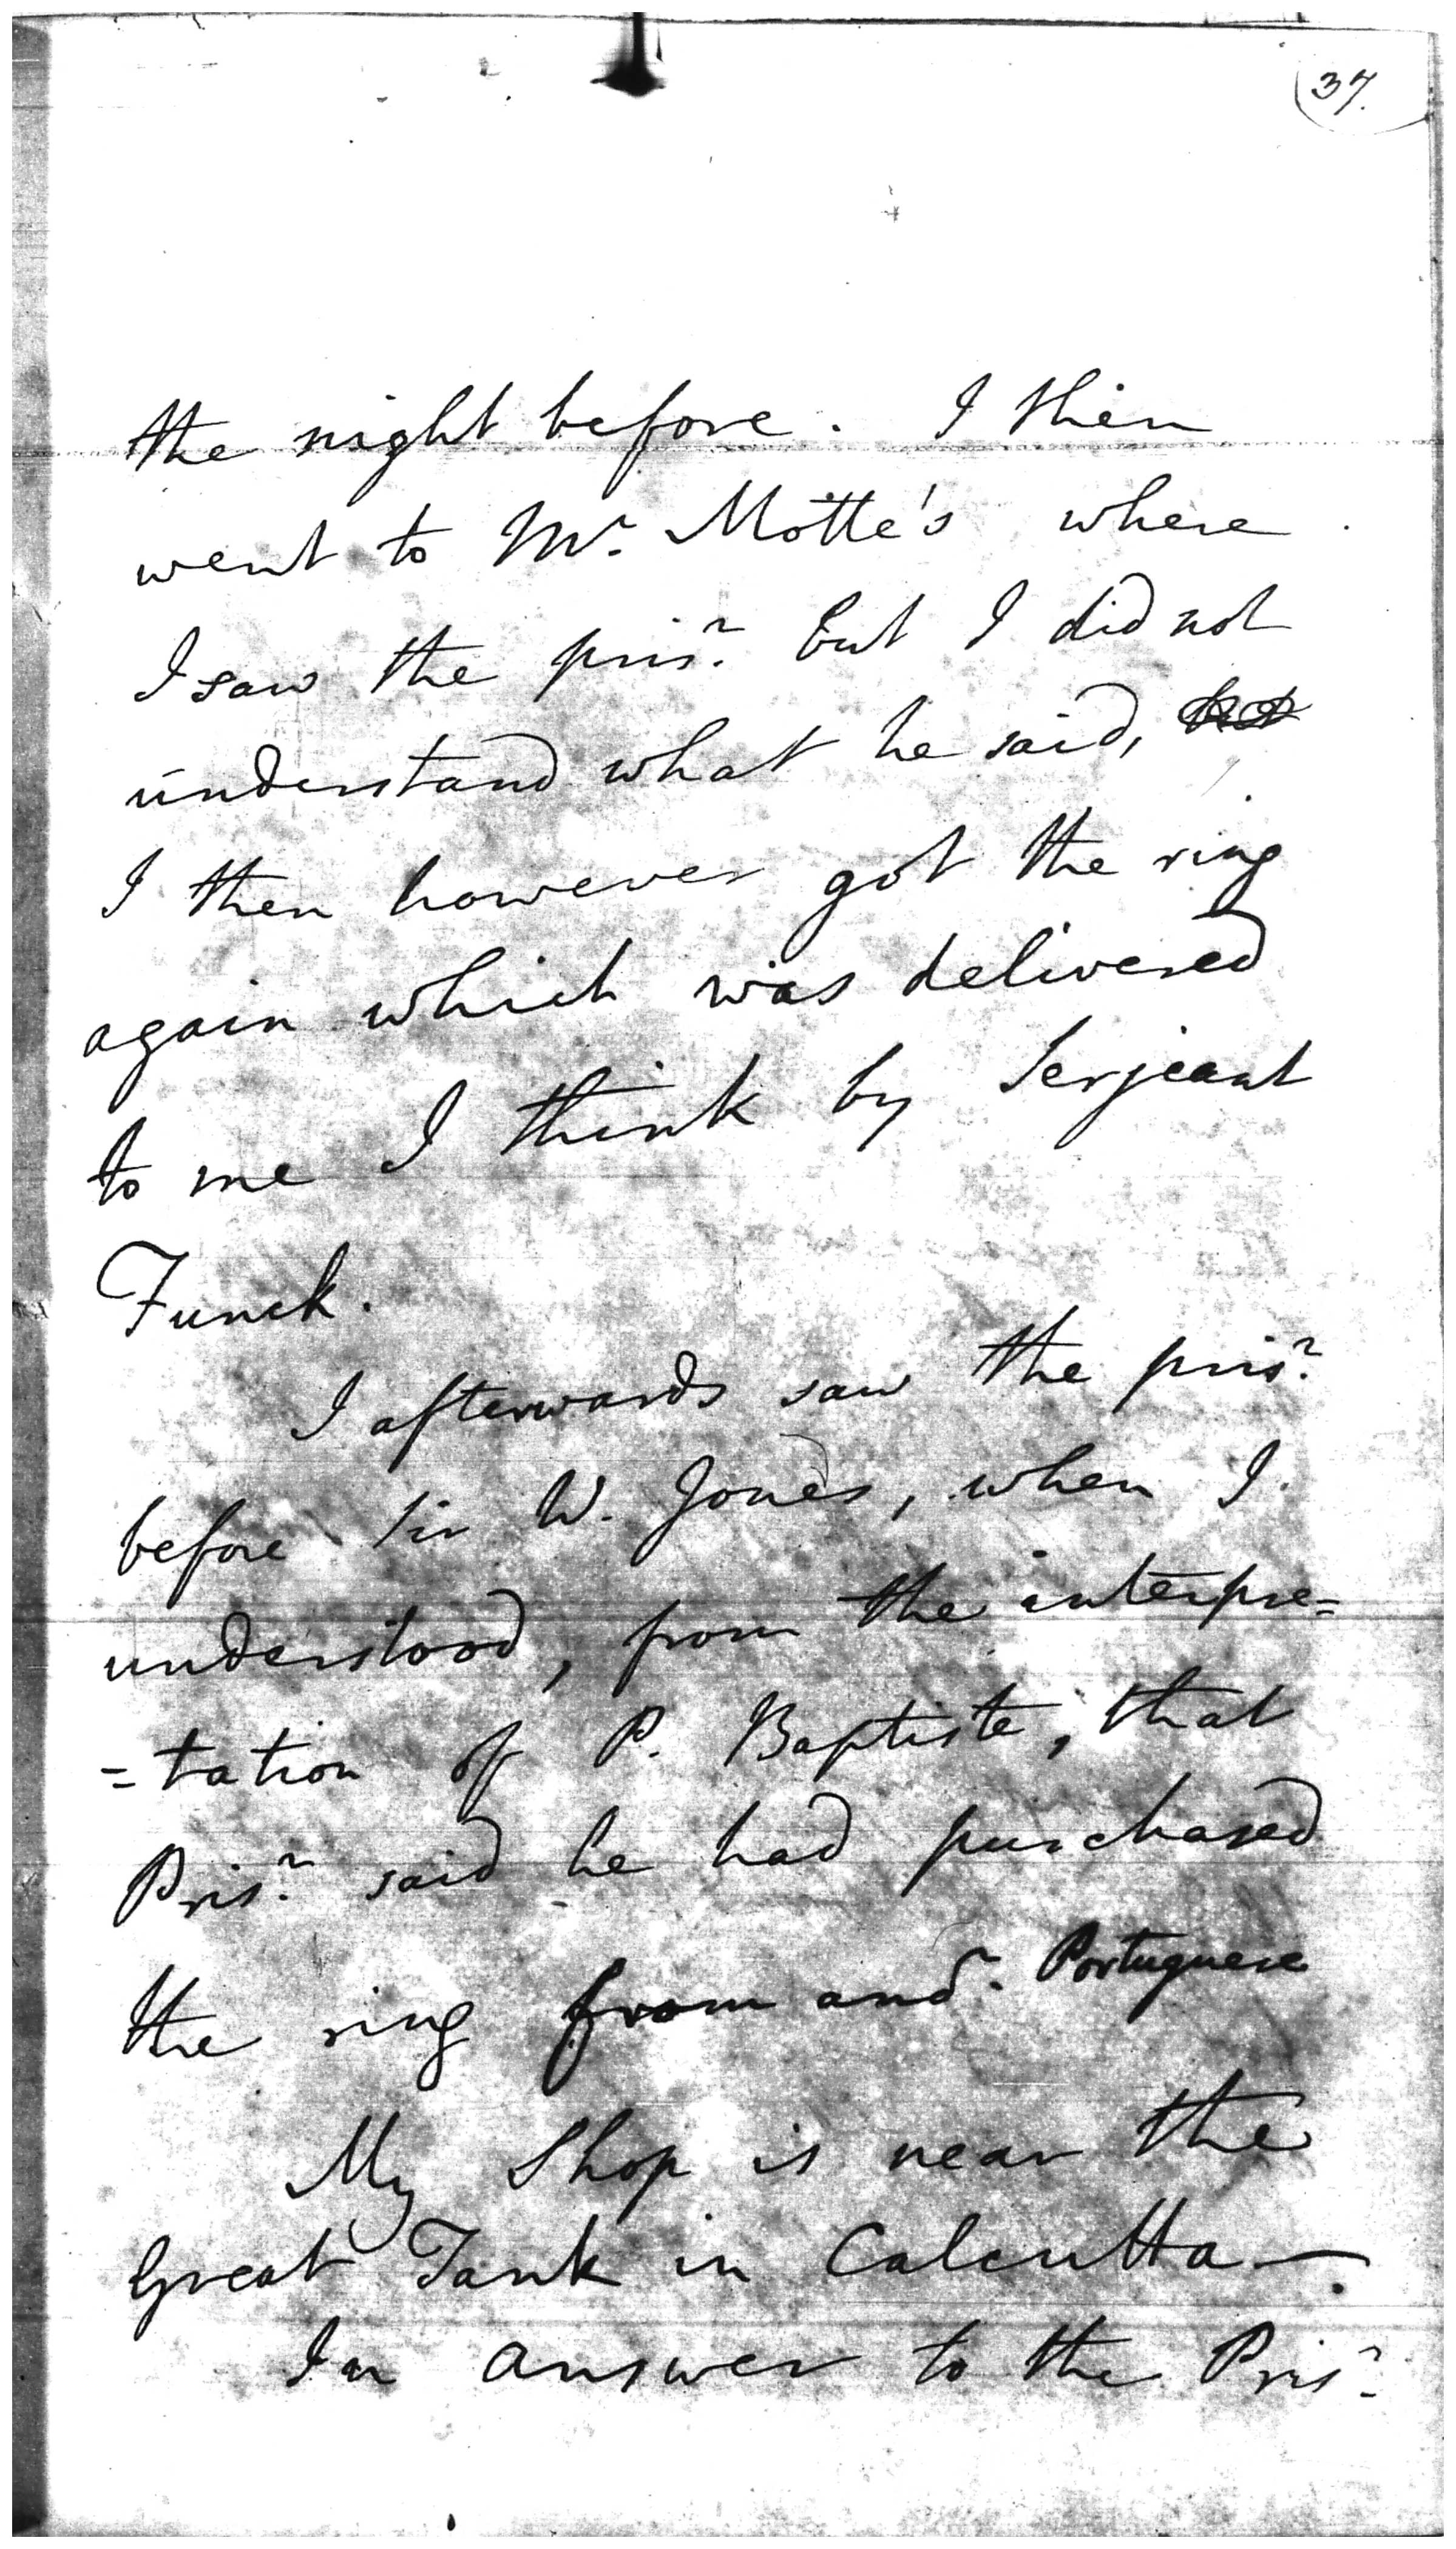 37.
the night before. I then
went to Mr. Motte's where
I saw the prisr. but I did not
understand what he said,
I then however got the ring
again which was delivered
to me I think by Serjeant
Funck.
I afterwards saw the prisr.
before Sir W. Jones, when I
understood, from the interpre=
=tation of P. Baptiste, that
Prisr. said he had purchased
the ring from anor. Portuguese
My Shop is near the
Great Tank in Calcutta—.
In answer to the Prisr.